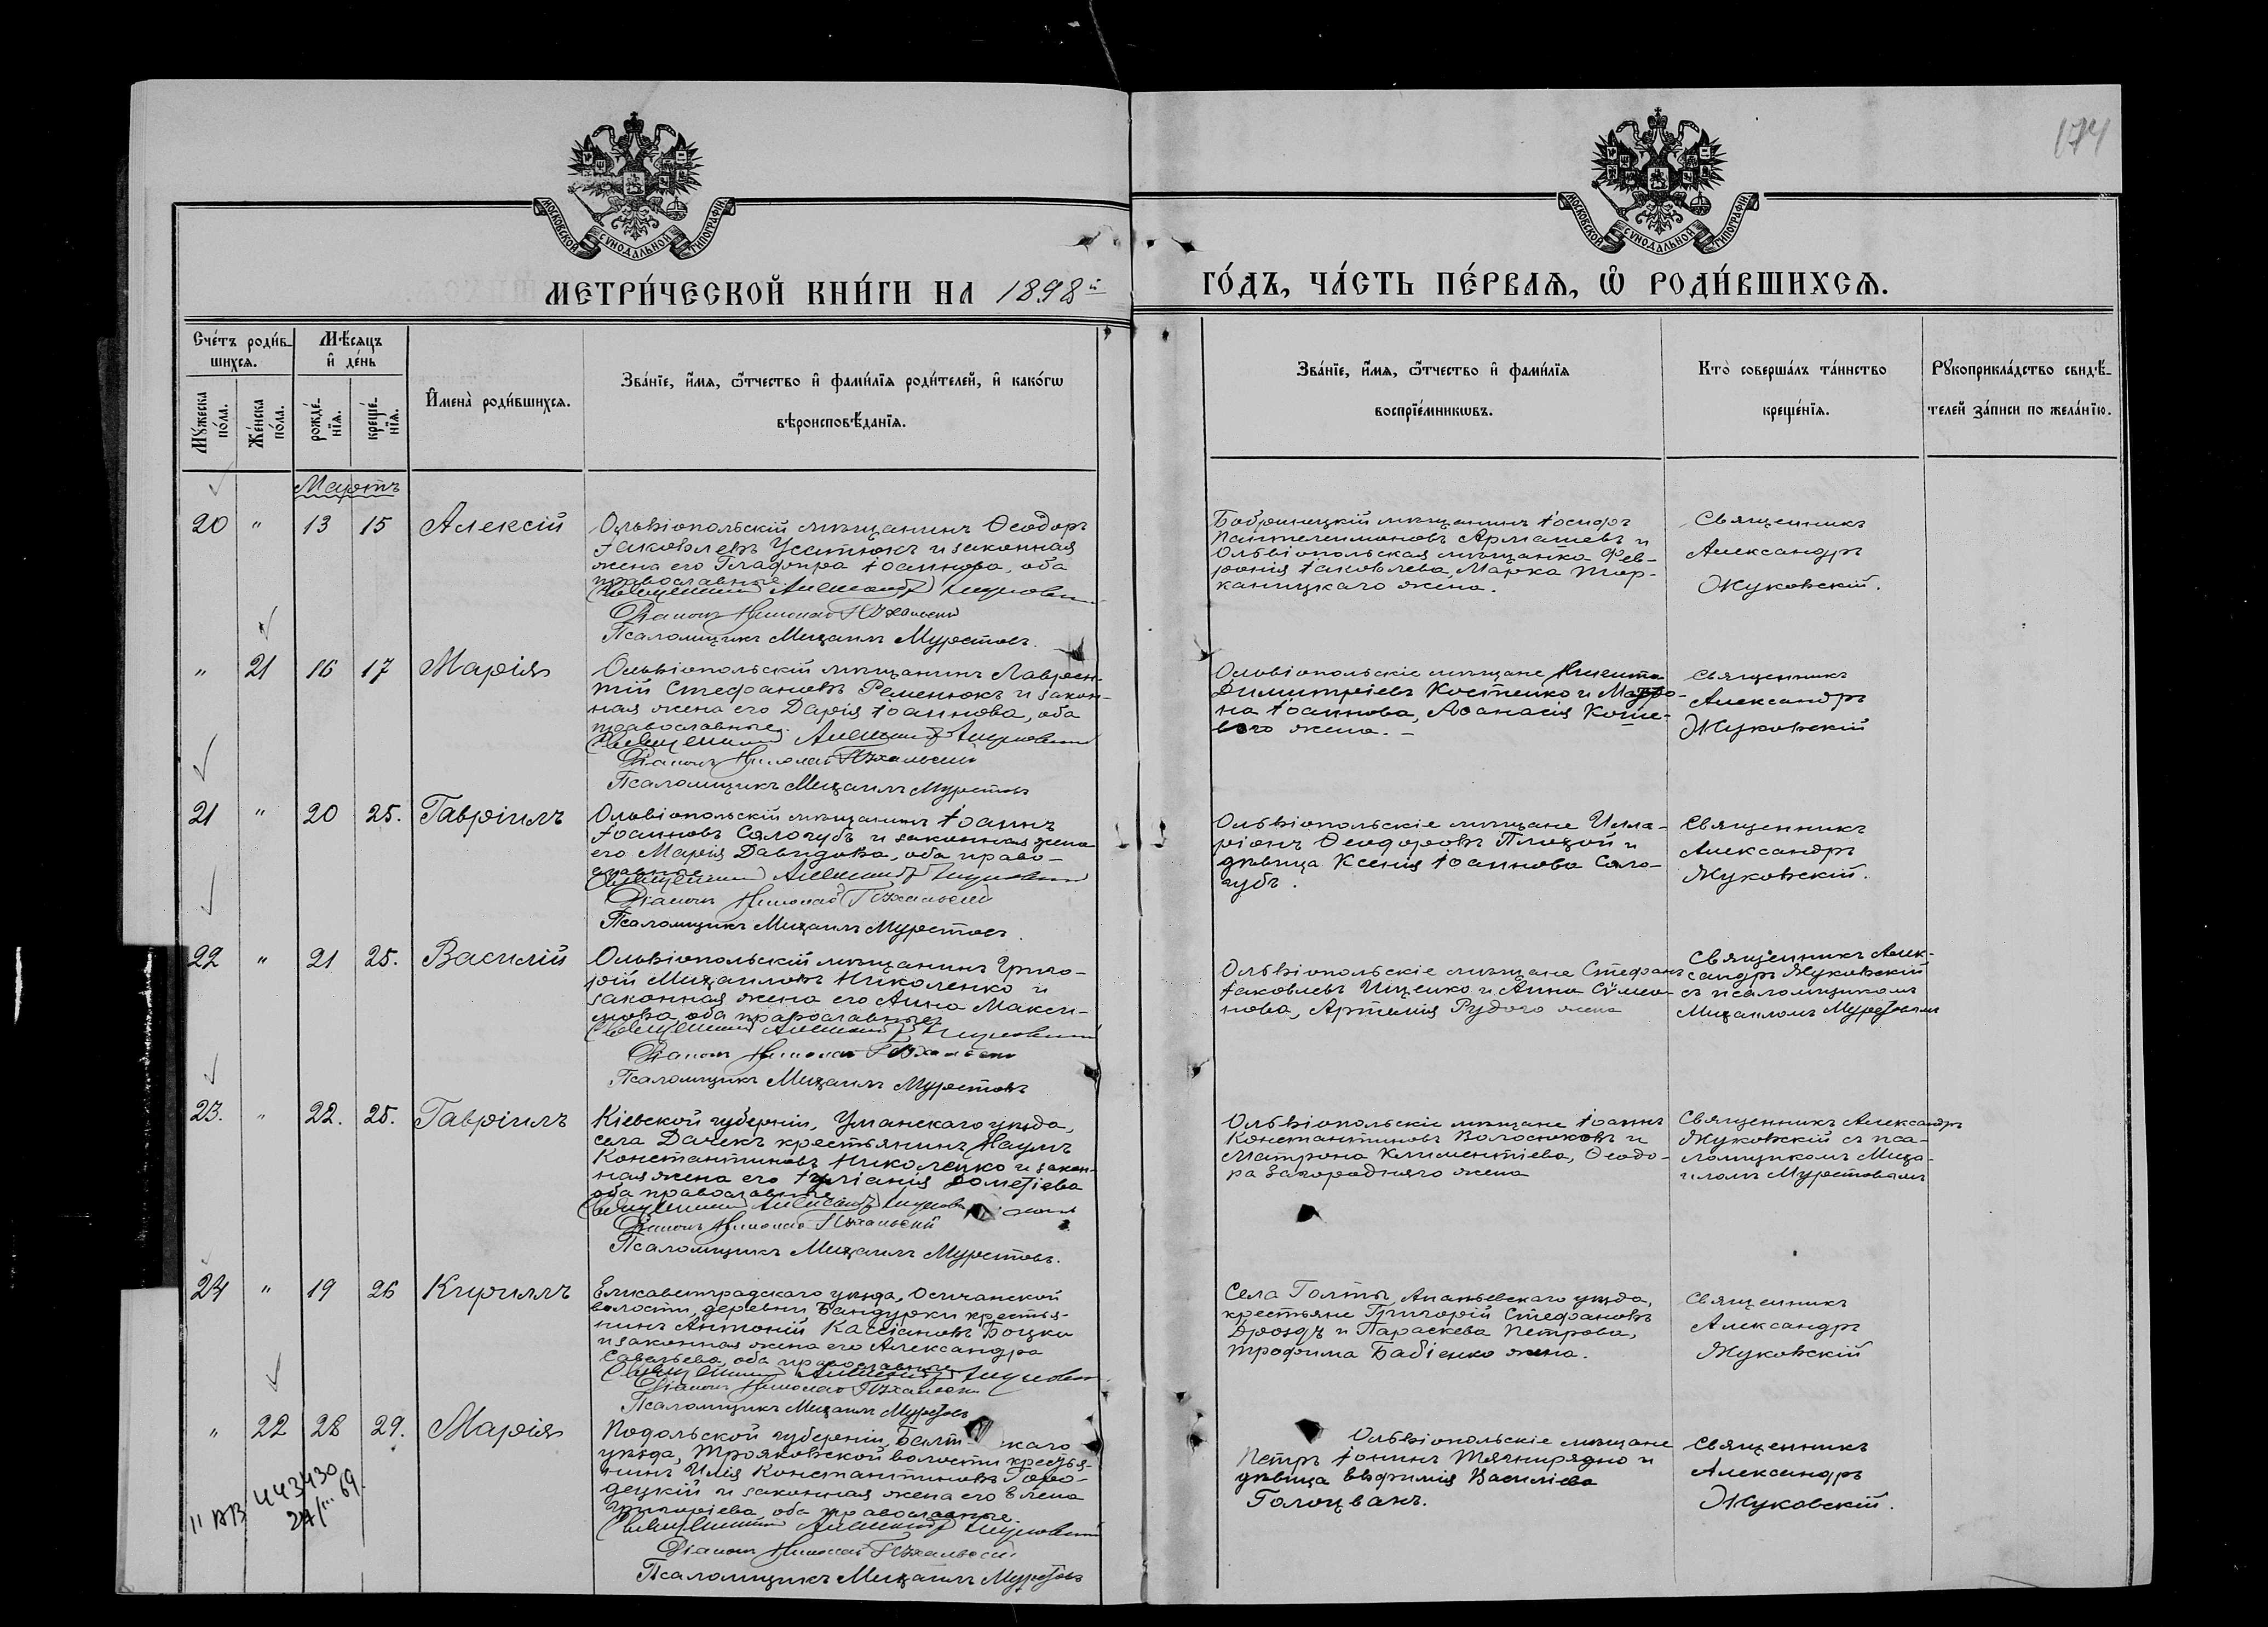 174
МОСКОВСКОЙ СѴНОДАЛЬНОЙ ТИПОГРАФІИ
МОСКОВСКОЙ СѴНОДАЛЬНОЙ ТИПОГРАФІИ
МЕТРИ́ЧЕСКОЙ КНИ́ГИ НА 1898й
ГО́ДЪ, ЧА́СТЬ ПЕ́РВАѦ, Ѿ РОДИ́ВШИХСѦ.
Сче́тъ роди́в-
шихсѧ.
Мѣ́сѧцъ
и҆ де́нь
Мꙋ́жеска
по́ла.
Же́нска
по́ла.
рожде́-
нїѧ.
креще́-
нїѧ.
И҆мена̀ роди́вшихсѧ.
Зва́нїе, и҆́мѧ, ѻ҆́тчество и҆ фами́лїѧ роди́телей, и҆ како́гѡ
вѣроисповѣ́данїѧ.
Зва́нїе, и҆́мѧ, ѻ҆́тчество и҆ фами́лїѧ
воспрїе́мникѡвъ.
Кто̀ соверша́лъ та́инство
креще́нїѧ.
Рꙋкоприкла́дство свидѣ́-
телей за́писи по жела́нїю.
Мартъ
20 " 13 15 Алексій
Ольвіопольскій мѣщанинъ Ѳеодоръ
Іаковлевъ Усатюкъ и законная
жена его Глафира Іоаннова, оба
православные.
Священникъ Александръ Жуковскій
Діаконъ Николай Пѣхальскій
Псаломщикъ Михаилъ Муретовъ.
Бобринецкій мѣщанинъ Іосифъ
Пантелеимоновъ Армашевъ и
Ольвіопольская мѣщанка Фев-
ронія Іаковлева, Марка Тор-
каницкаго жена.
Священникъ
Александръ
Жуковскій.
" 21 16 17 Марія
Ольвіопольскій мѣщанинъ Лаврен-
тій Стефановъ Ременюкъ и закон-
ная жена его Дарія Іоаннова, оба
православные.
Священникъ Александръ Жуковскій
Діаконъ Николай Пѣхальскій
Псаломщикъ Михаилъ Муретовъ
Ольвіопольскіе мѣщане Никита
Димитріевъ Костенко и Матро-
на Іоаннова, Аѳанасія Коше-
вого жена. –
Священникъ
Александръ
Жуковскій
21 " 20 25. Гавріилъ
Ольвіопольскій мѣщанинъ Іоаннъ
Іоанновъ Сологубъ и законная жена
его Марія Давидова, оба право-
славные
Священникъ Александръ Жуковскій
Діаконъ Николай Пѣхальскій
Псаломщикъ Михаилъ Муретовъ.
Ольвіопольскіе мѣщане Илла-
ріонъ Ѳеодоровъ Плохой и
дѣвица Ксенія Іоаннова Соло-
губъ.
Священникъ
Александръ
Жуковскій.
22 " 21 25. Василій
Ольвіопольскій мѣщанинъ Григо-
рій Михаиловъ Николенко и
законная жена его Анна Макси-
мова, оба православные.
Священникъ Александръ Жуковскій
Діаконъ Николай Пѣхальскій
Псаломщикъ Михаилъ Муретовъ
Ольвіопольскіе мѣщане Стефанъ
Іаковлевъ Ищенко и Анна Сѵмео-
нова, Артемія Рудого жена
Священникъ Алек-
сандръ Жуковскій
съ псаломщикомъ
Михаиломъ Муретовымъ
23. " 22. 25. Гавріилъ
Кіевской губерніи, Уманскаго уѣзда,
села Дачекъ крестьянинъ Наумъ
Константиновъ Николенко и закон-
ная жена его Іуліанія Дометіева
оба православные
Священникъ Александръ Жуковскій
Діаконъ Николай Пѣхальскій
Псаломщикъ Михаилъ Муретовъ.
Ольвіопольскіе мѣщане Іоаннъ
Константиновъ Волосюковъ и
Матрона Климентіева, Ѳеодо-
ра Загородняго жена
Священникъ Александръ
Жуковскій съ пса-
ломщикомъ Миха-
иломъ Муретовымъ
24 " 19 26 Кириллъ
Елисаветградскаго уѣзда, Осичанской
волости, деревни Бандурки крестья-
нинъ Антоній Кассіановъ Боцки
и законная жена его Александра
Савельева, оба православные
Священникъ Александръ Жуковскій
Діаконъ Николай Пѣхальскій
Псаломщикъ Михаилъ Муретовъ
Села Голты, Ананьевскаго уѣзда,
крестьяне Григорій Стефановъ
Дроздъ и Параскева Петрова,
Трофима Бабіенко жена.
Священникъ
Александръ
Жуковскій
" 22 28 29. Марія
Подольской губерніи, Балт- каго
уѣзда, Трояковской волости крестья-
нинъ Илія Константиновъ Горо-
децкій и законная жена его Елена
Григоріева, оба православные.
Священникъ Александръ Жуковскій
Діаконъ Николай Пѣхальскій
Псаломщикъ Михаилъ Муретовъ
Ольвіопольскіе мѣщане
Петръ Іонинъ Тягнирядно и
дѣвица Евфимія Василіева
Голоцванъ.
Священникъ
Александръ
Жуковскій.
443430